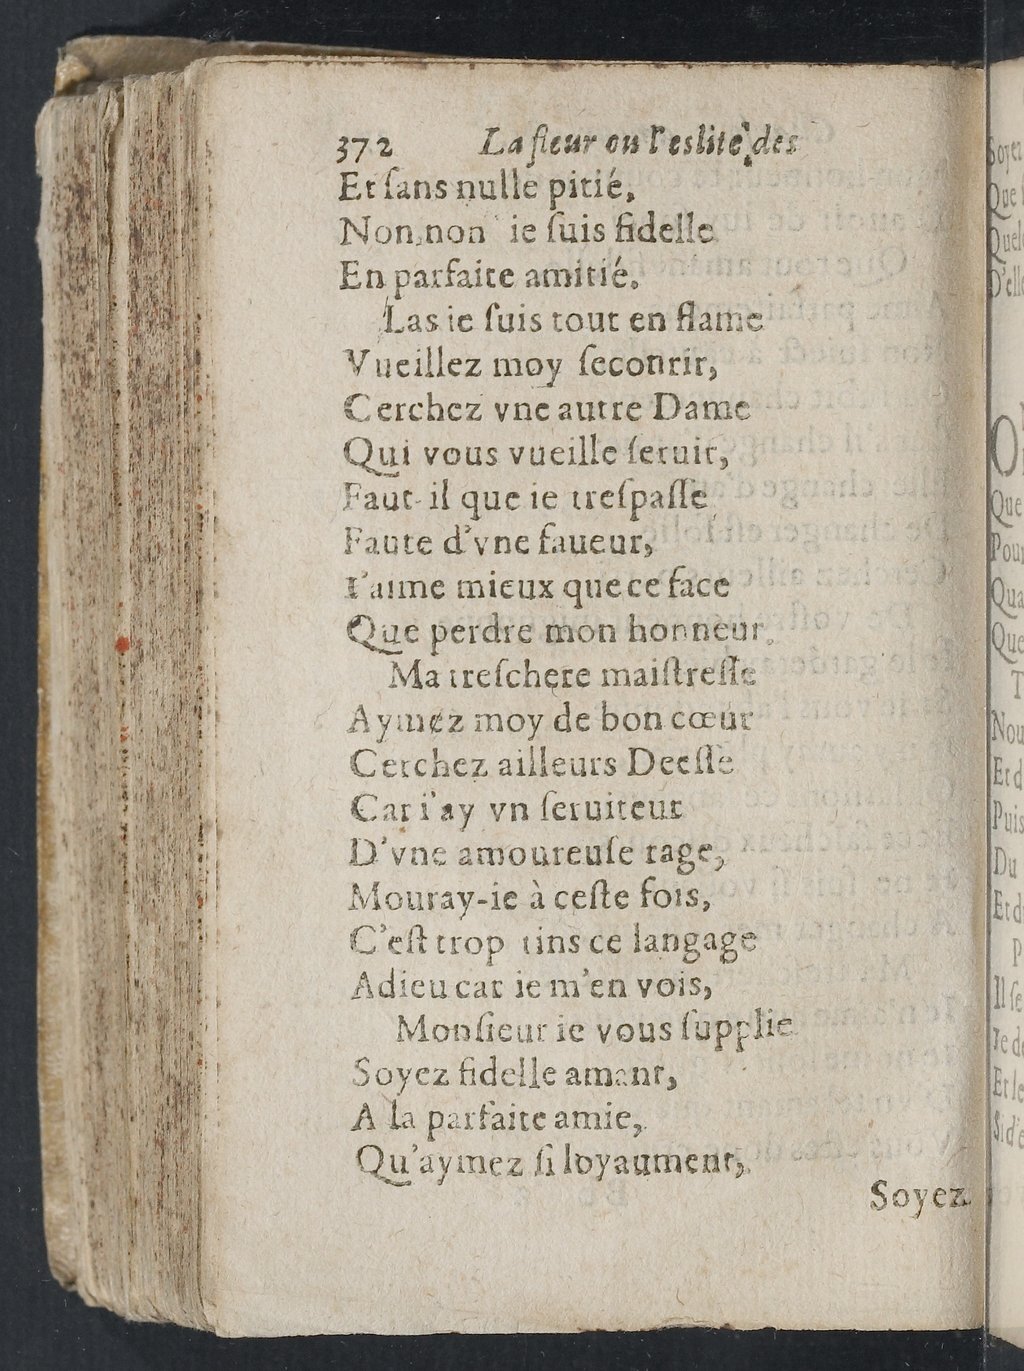 372 La fleur ou l'eslite des
Et ſans nulle pitié,
Non,non ie ſuis fidelle
En parfaite amitié.
Las ie ſuis tout en flame
Vueillez moy ſeconrir,
Cerchez vne autre Dame
Qui vous vueille ſeruir,
Faut-il que ie treſpaſſe
Faute d'vne faueur,
I'aime mieux que ce face
Que perdre mon honneur.
Ma treſchere maiſtreſſe
Aymez moy de bon cœur
Cerchez ailleurs Deeſſe
Car i'ay vn ſeruiteur
D'vne amoureuſe rage,
Mouray-ie à ceſte fois,
C'eſt trop tins ce langage
Adieu car ie m'en vois,
Monſieur ie vous ſupplie
Soyez fidelle amant,
A la parfaite amie,
Qu'aymez ſi loyaument,
Soyez